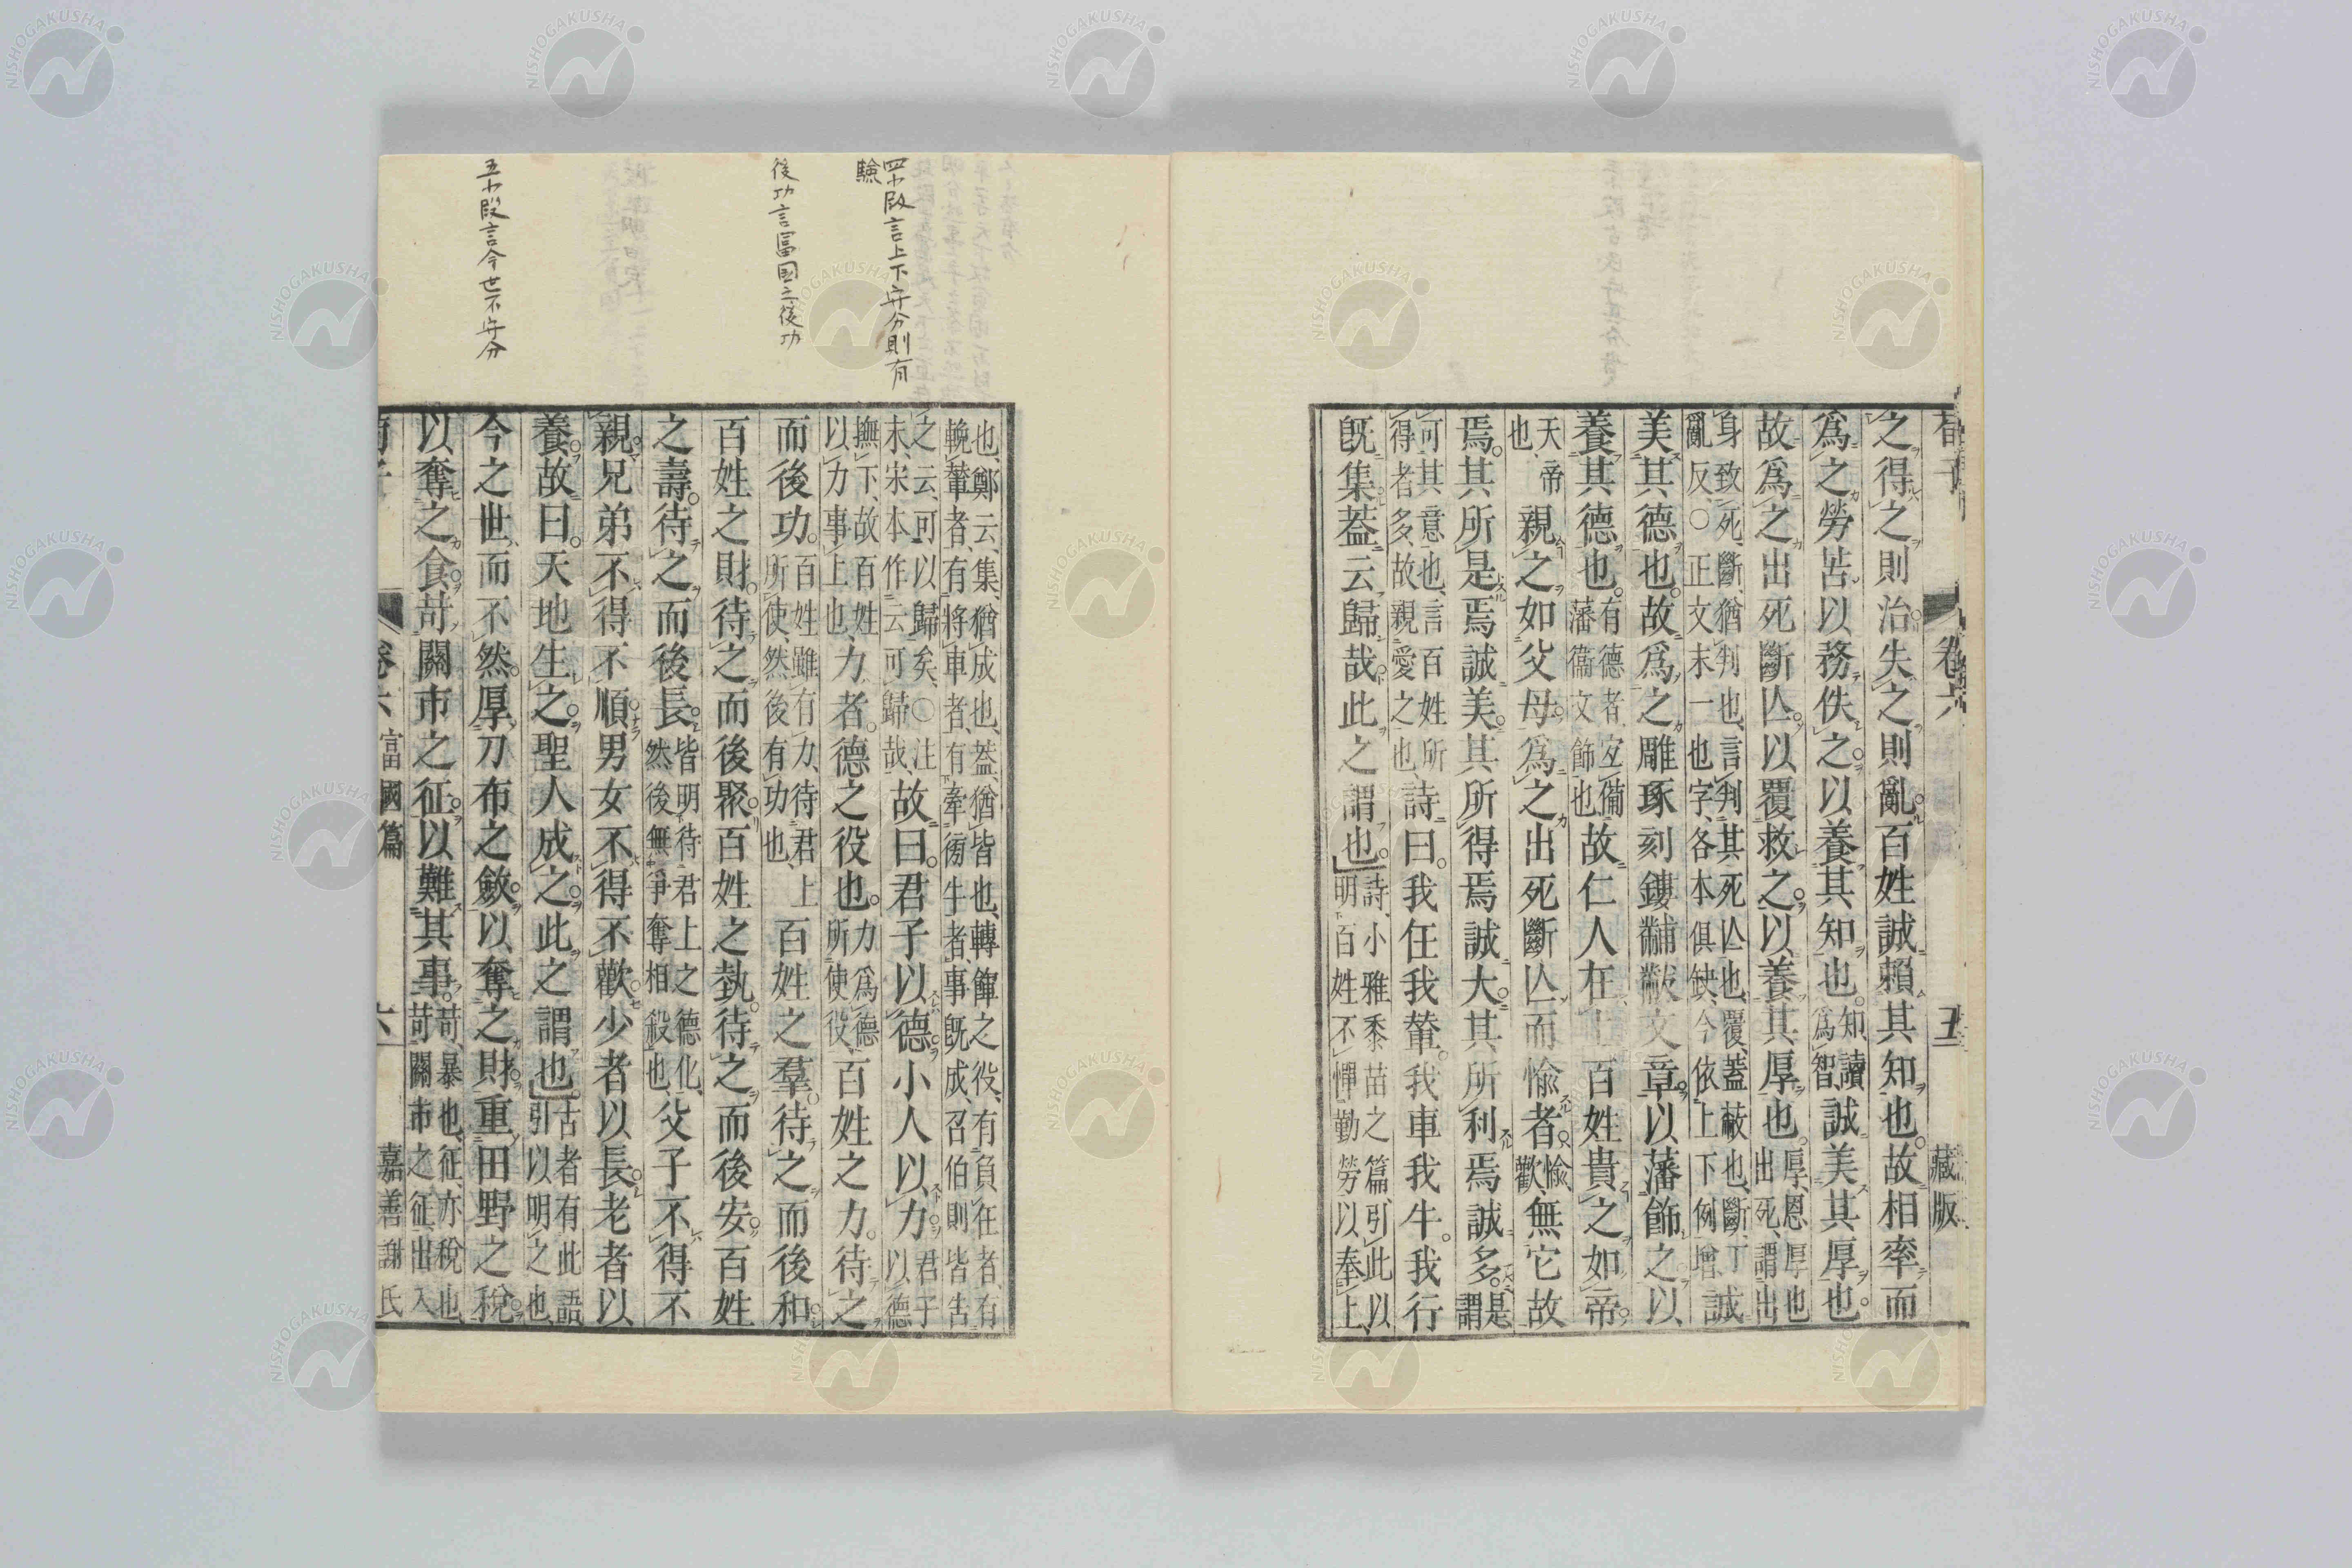 荀子 卷六 五 藏版
之得之則治失之則亂百姓誠賴其知也故相率而
爲之勞苦以務佚之以養其知也知讀爲智誠美其厚也
故爲之出死斷亾以覆救之以養其厚也厚恩厚也出死謂出
身致死斷猶判也言判其死亾也覆蓋蔽也斷丁亂反○正文末一也字各本俱缺今依上下例增誠
美其德也故爲之雕琢刻鏤黼黻文章以藩飾之以
養其德也有德者宜備藩衞文飾也故仁人在上百姓貴之如帝
天帝也親之如父母爲之出死斷亾而愉者愉歡無它故
焉其所是焉誠美其所得焉誠大其所利焉誠多是謂
可其意也言百姓所得者多故親愛之也詩曰我任我輦我車我牛我行
旣集葢云歸哉此之謂也詩小雅黍苗之篇引此以明百姓不憚勤勞以奉上
也鄭云集猶成也葢猶皆也轉餫之役有負任者有輓輦者有將車者有牽傍牛者事旣成召伯則皆告
之云可以歸矣○注末宋本作云可歸哉故曰君子以德小人以力君子以德
撫下故百姓以力事上也力者德之役也力爲德所使役百姓之力待之
而後功百姓雖有力待君上所使然後有功也百姓之羣待之而後和
百姓之財待之而後聚百姓之埶待之而後安百姓
之壽待之而後長皆明待君上之德化然後無爭奪相殺也父子不得不
親兄弟不得不順男女不得不歡少者以長老者以
養故曰天地生之聖人成之此之謂也古者有此語引以明之也
今之世而不然厚刀布之斂以奪之財重田野之稅
以奪之食苛關市之征以難其事苛暴也征亦稅也苛關市之征出入
荀子 卷六 富國篇 六 嘉善謝氏
四小段言上下守分則有
驗
後功言富國之後功
五小段言今世不守分
NISHOGAKUSHA